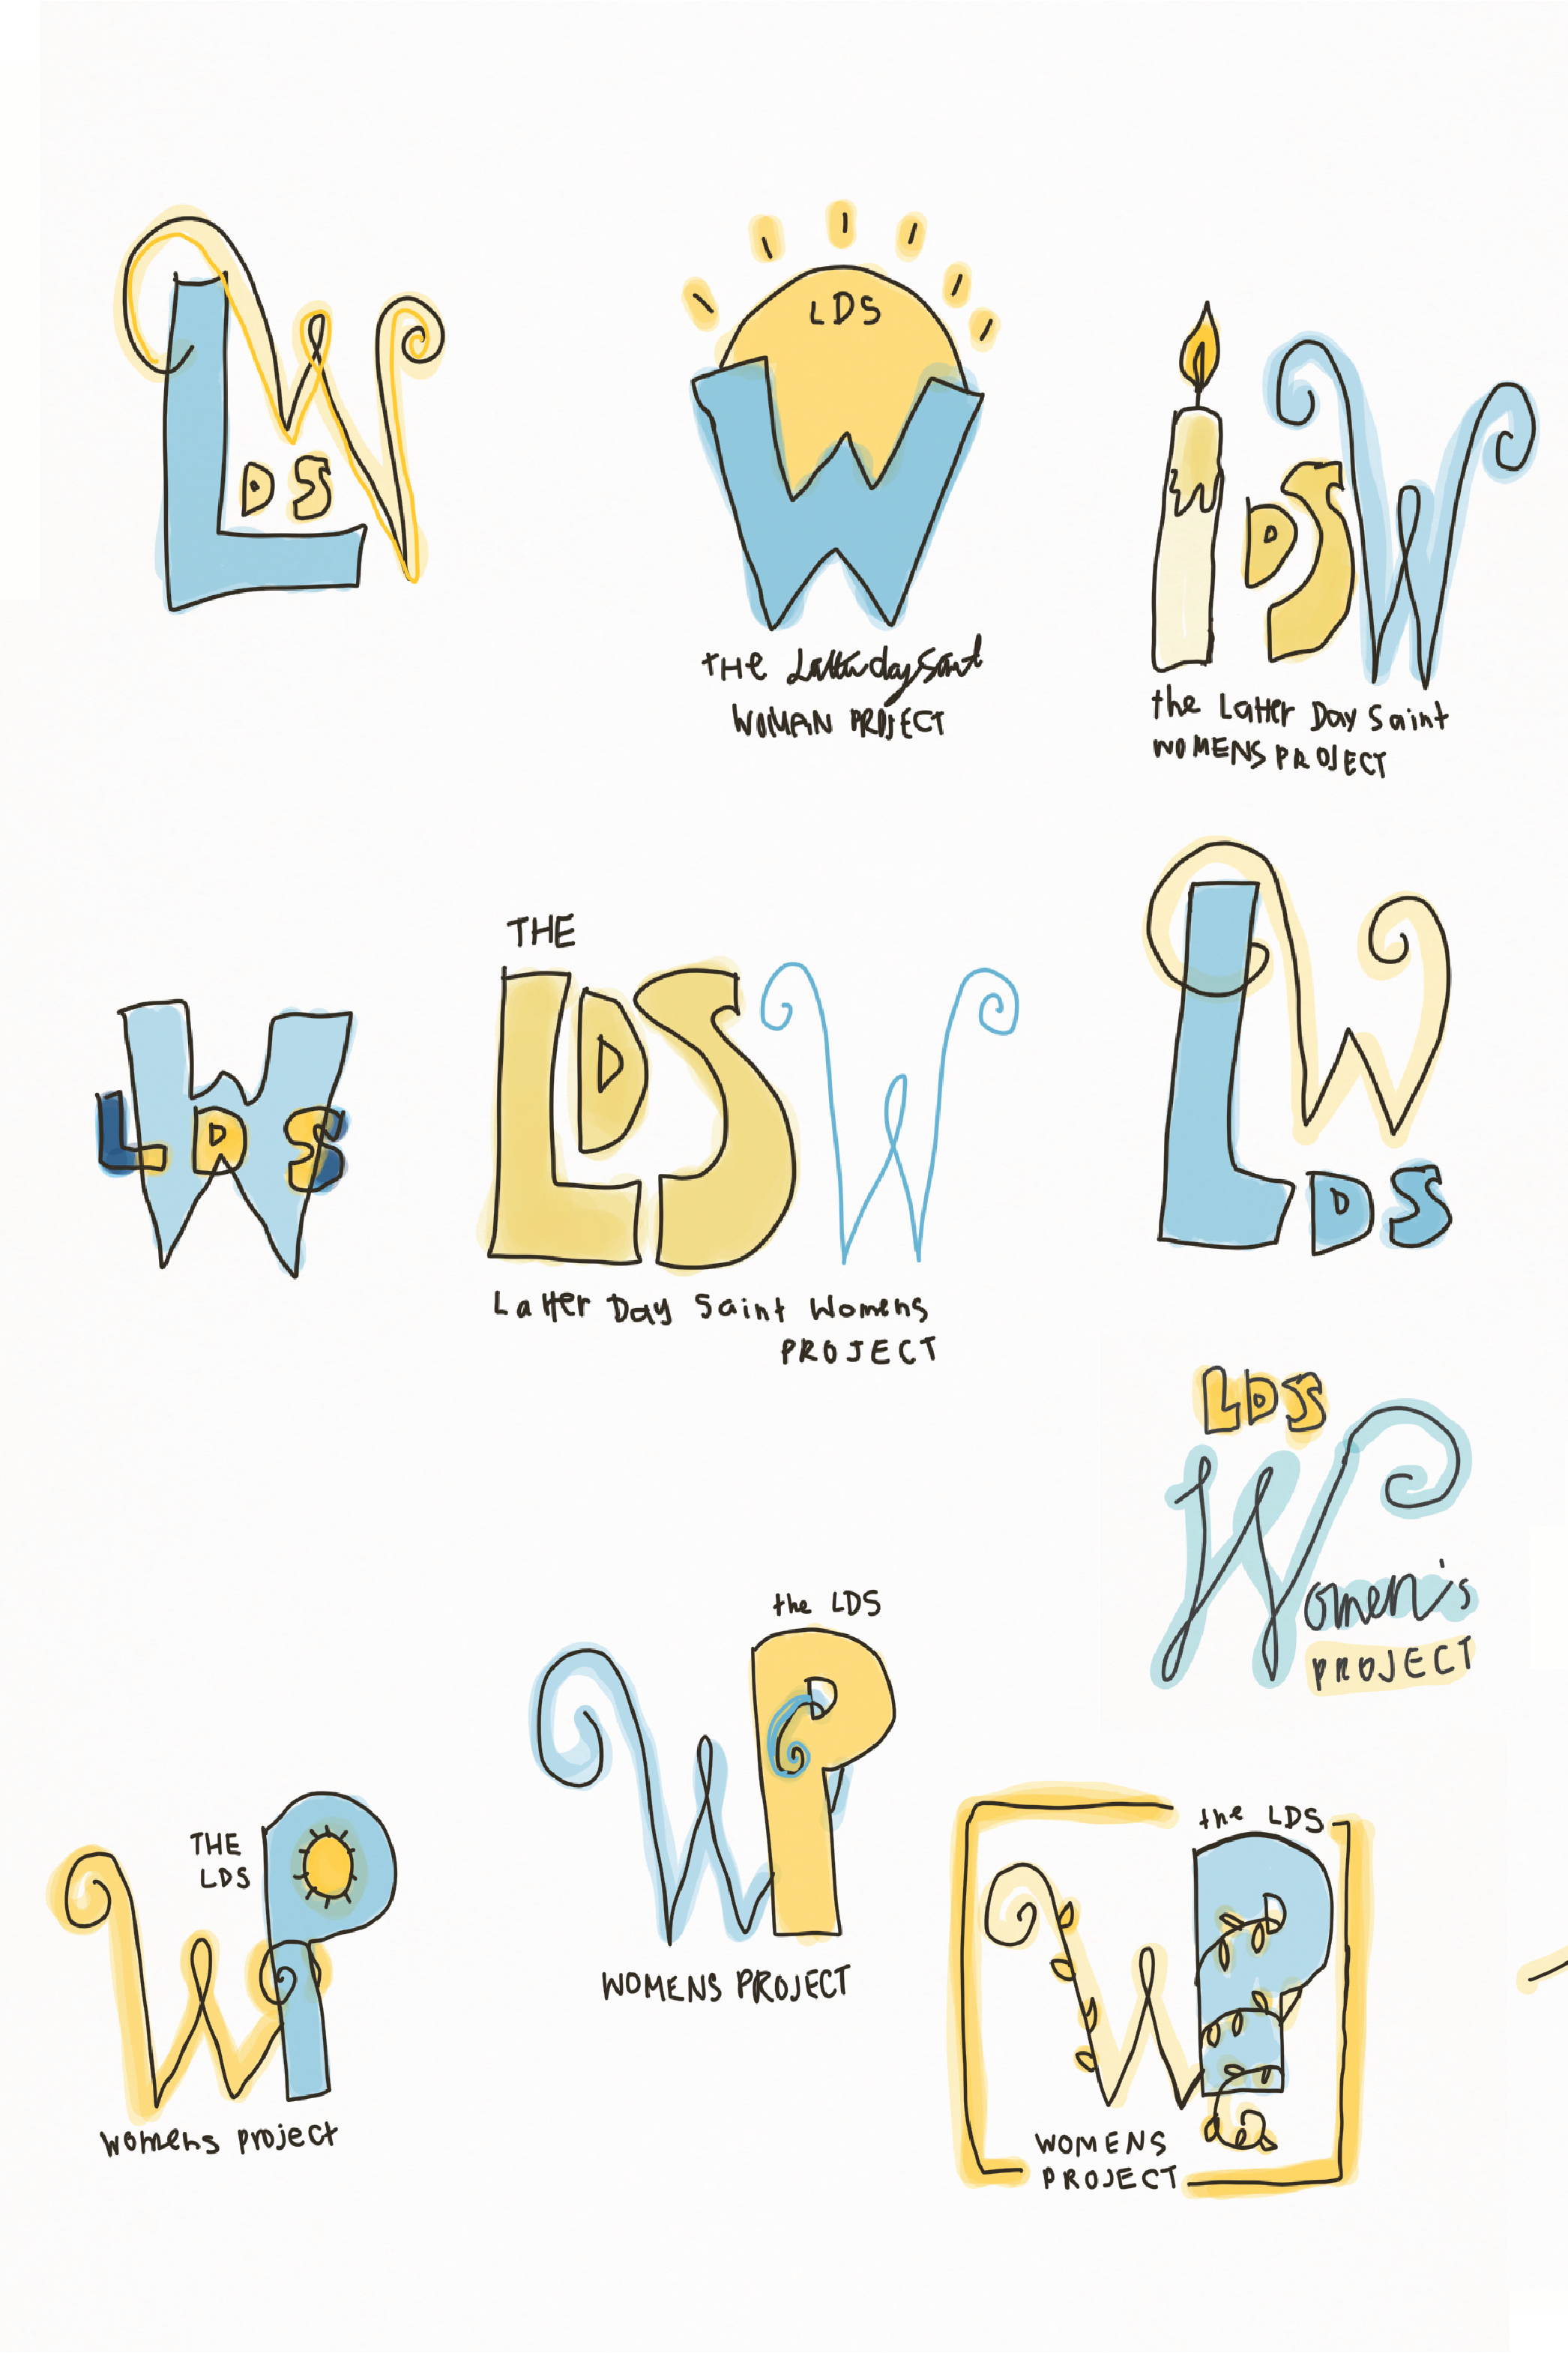 LW
DS
LDS
W
THE Latterday Saint
WOMAN PROJECT
DSW
the Latter Day Saint
WOMENS PROJECT
W
LDS
THE
LDSW
Latter Day Saint Womens
PROJECT
LW
DS
LDS
Women's
PROJECT
the LDS
WP
WOMENS PROJECT
THE
LDS
WP
womens project
the LDS
WP
WOMENS
PROJECT